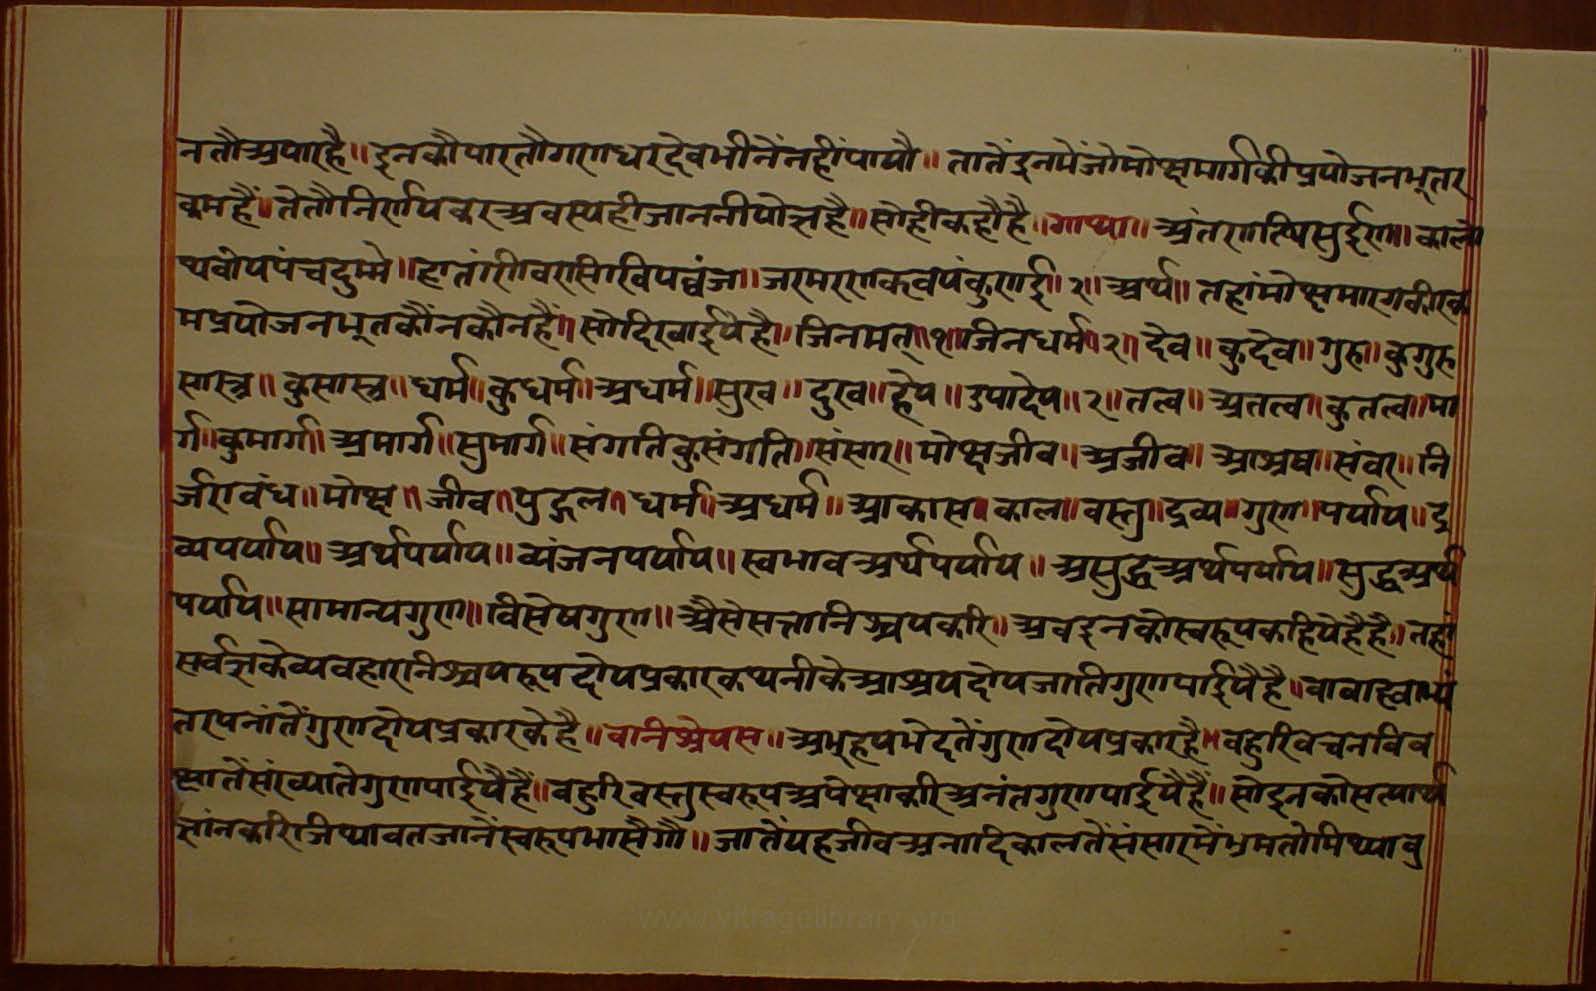 नतौअपारहै॥इनकौपारतौगणधरदेवभीनेंनहींपायौ॥तातेंइनमेंजोमोक्षमार्गकीप्रयोजनभूतर
कमहैं॥तेतौनिर्णयकरअवस्यहीजाननीयोग्यहै॥सोहीकहौहै॥गाथा॥अंतरणत्यिसुईण॥कालो
थवोयपंचदुम्मे॥ जरमरणकवयंकुणई॥२॥अर्थ॥तहांमोक्षमारगकीरक
मप्रयोजनभूतकौंनकौनहैं॥सोदिखाईयैहै॥जिनमत्॥१॥जिनधर्म॥२॥देव॥कुदेव॥गुरु॥कुगुरु
सास्त्र॥कुसास्त्र॥धर्म॥कुधर्म॥अधर्म॥सुख॥दुख॥हेय॥उपादेय॥२॥तत्व॥अतत्व॥कुतत्व॥मा
र्ग॥कुमार्ग॥अमार्ग॥सुमार्ग॥संगतिकुसंगति॥संसार॥मोक्षजीव॥अजीव॥आश्रव॥संवर॥नि
र्जराबंध॥मोक्ष॥जीव॥पुद्गल॥धर्म॥अधर्म॥आकास॥काल॥वस्तु॥द्रव्य॥गुण॥पर्याय॥द्र
व्यपर्याय॥अर्थपर्याय॥व्यंजनपर्याय॥स्वभावअर्थपर्याय॥असुद्धअर्थपर्याय॥सुद्धअर्थ
पर्याय॥सामान्यगुण॥विसेषगुण॥अैसेसत्तानिश्चयकरि॥अवइनकोस्वरूपकहियेहैहै॥तहां
सर्वज्ञकेव्यवहारनिश्चयरूपदोयप्रकारकथनीकेआश्रयदोयजातिगुणपाईयैहै॥वावाह्याभ्यं
तरपनांतेंगुणदोयप्रकारकेहै॥वानिश्रेयस॥अभ्रूहयभेदतेंगुणदोयप्रकारहै॥बहुरिवचनविव
क्षातेंसंख्यातेगुणपाईयैहैं॥बहुरिवस्तुस्वरूपअपेक्षाकरिअनंतगुणपाईयैहैं॥सोइनकोसत्यार्थ
ज्ञांनकरिजिथावतजानेंस्वरूपभासैगौ॥जातेंयहजीवअनादिकालतेंसंसारमेंभ्रमतोमिथ्यावु
www.vitragelibrary.org